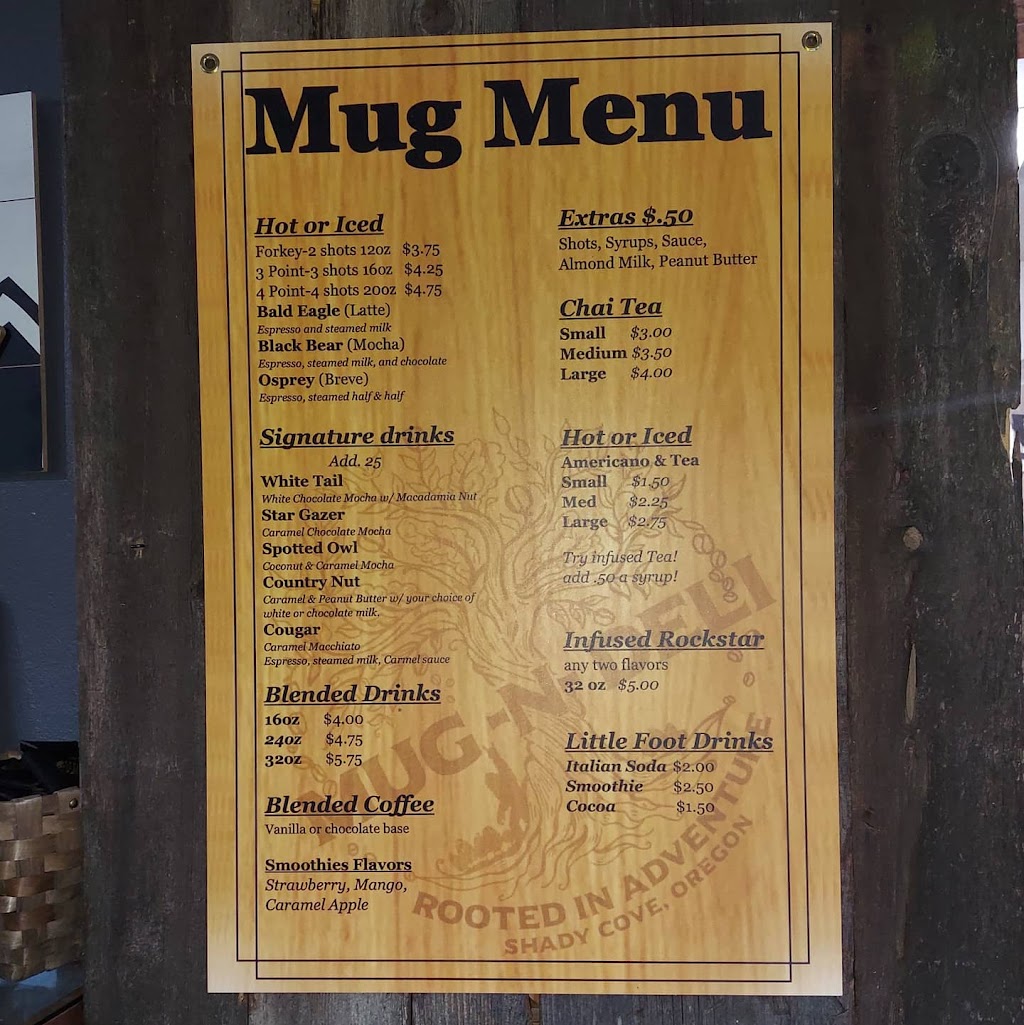 Mug Menu
Hot or Iced
Forkey-2 shots 12oz $3.75
3 Point-3 shots 16oz $4.25
4 Point-4 shots 20oz $4.75
Bald Eagle (Latte)
Espresso and steamed milk
Black Bear (Mocha)
Espresso, steamed milk, and chocolate
Osprey (Breve)
Espresso, steamed half & half
Signature drinks
Add. 25
White Tail
White Chocolate Mocha w/ Macadamia Nut
Star Gazer
Caramel Chocolate Mocha
Spotted Owl
Coconut & Caramel Mocha
Country Nut
Caramel & Peanut Butter w/ your choice of
white or chocolate milk.
Cougar
Caramel Macchiato
Espresso, steamed milk, Carmel sauce
Blended Drinks
16oz $4.00
24oz $4.75
32oz $5.75
Blended Coffee
Vanilla or chocolate base
Smoothies Flavors
Strawberry, Mango,
Caramel Apple
Extras $.50
Shots, Syrups, Sauce,
Almond Milk, Peanut Butter
Chai Tea
Small $3.00
Medium $3.50
Large $4.00
Hot or Iced
Americano & Tea
Small $1.50
Med $2.25
Large $2.75
Try infused Tea!
add .50 a syrup!
Infused Rockstar
any two flavors
32 oz $5.00
Little Foot Drinks
Italian Soda $2.00
Smoothie $2.50
Cocoa $1.50
MUG-N-DELI
ROOTED IN ADVENTURE
SHADY COVE, OREGON